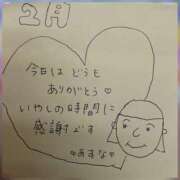 2月
今日は どうも
ありがとう♡
いやしの時間に
感謝です
♡あすな♡